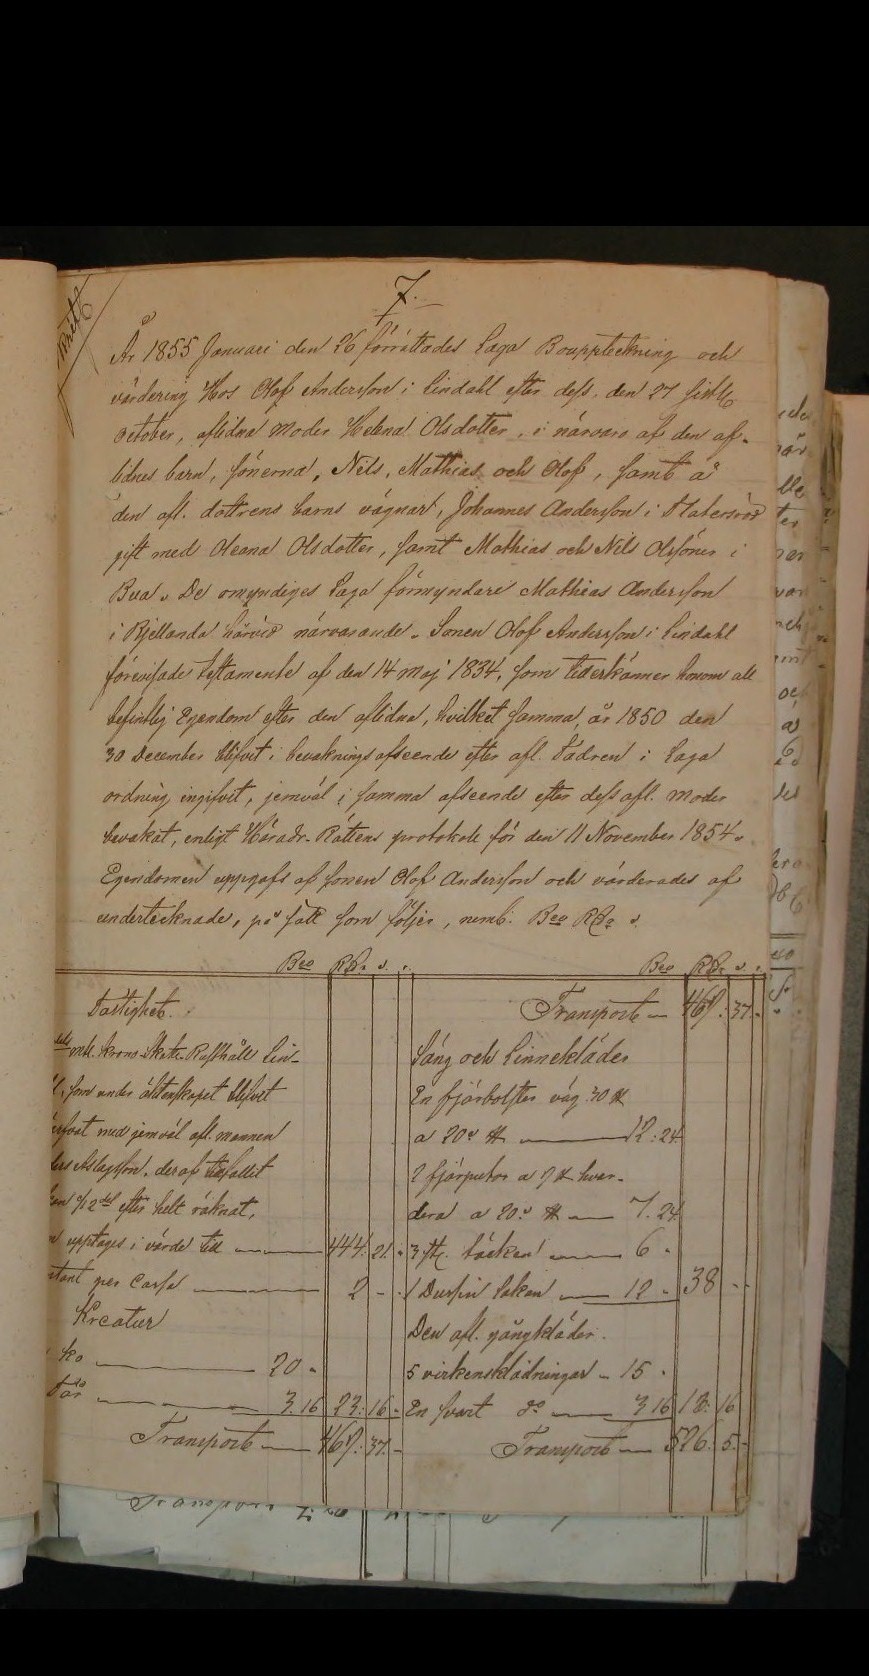 7.
År 1855 Januari den 26 förrättades Laga Bouppteckning och
värdering Hos Olof Andersson i Lindahl efter dess, den 27 sistl.
October, aflidna Moder Helena Olsdotter, i närvaro af den af-
lidnes barn, sönerna, Nils, Mathias och Olof, samt å
den afl. dottrens barns vägnar, Johannes Andersson i
gift med Oleana Olsdotter, samt Mathias och Nils Olssöner i
Bua. De omyndiges Laga förmyndare Mathias Andersson
i Kjellanda härvid närvarande. Sonen Olof Andersson i Lindahl
förevisade testamente af den 14 Maj 1834, som tillerkänner honom all
befintlig Egendom efter den aflidna, hvilket samma år 1850 den
30 December blifvit i bevaknings afseende efter afl. Fadren i Laga
ordning ingifvit, jemväl i samma afseende efter dess afl. Moder
bevakat, enligt Härads-Rättens protokoll för den 11 November 1854.
Egendomen uppgafs af sonen Olof Andersson och värderades af
undertecknade, på sätt som följer, nemb. Bco RDr s.
Bco RDr s. r.
Fastighet.
mtl. Krono Skatte Rusthåll Lin-
som under äktenskapet blifvit
med jemväl afl. mannen
Aslagsson, deraf tillfallit
1/12 del efter helt räknat,
upptages i värde till 444. 21.
per Cassa 2 - -
Kreatur
ko 20 -
får 3.16 23. 16 -
Transport 467. 37. -
Bco RDr s. r.
Transport 467. 37. -
Säng och Linnekläder
En fjärbolster väg. 30 ℔
a 20 s ℔ 12.24
2 fjärputor a 9 ℔ hvar-
dera a 20 s ℔ 7.24
3 st. täcken 6 -
1 Dussin Lakan 12 - 38 - -
Den afl. gångkläder.
5 virkensklädningar 15 -
En svart do 3 16 18. 16
Transport 526. 5. -